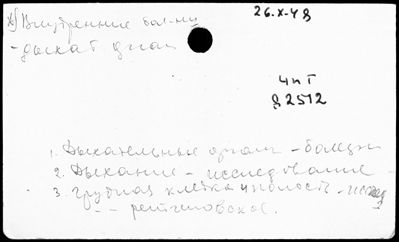 х) Внутренние бол-ни
26.X-48
- дыхат орган
ЧпТ
82512
1. Дыхательные органы - болезни
2. Дыхание - исследование
3. Грудная клетка и полость - исслед
- " - рентгеновское.